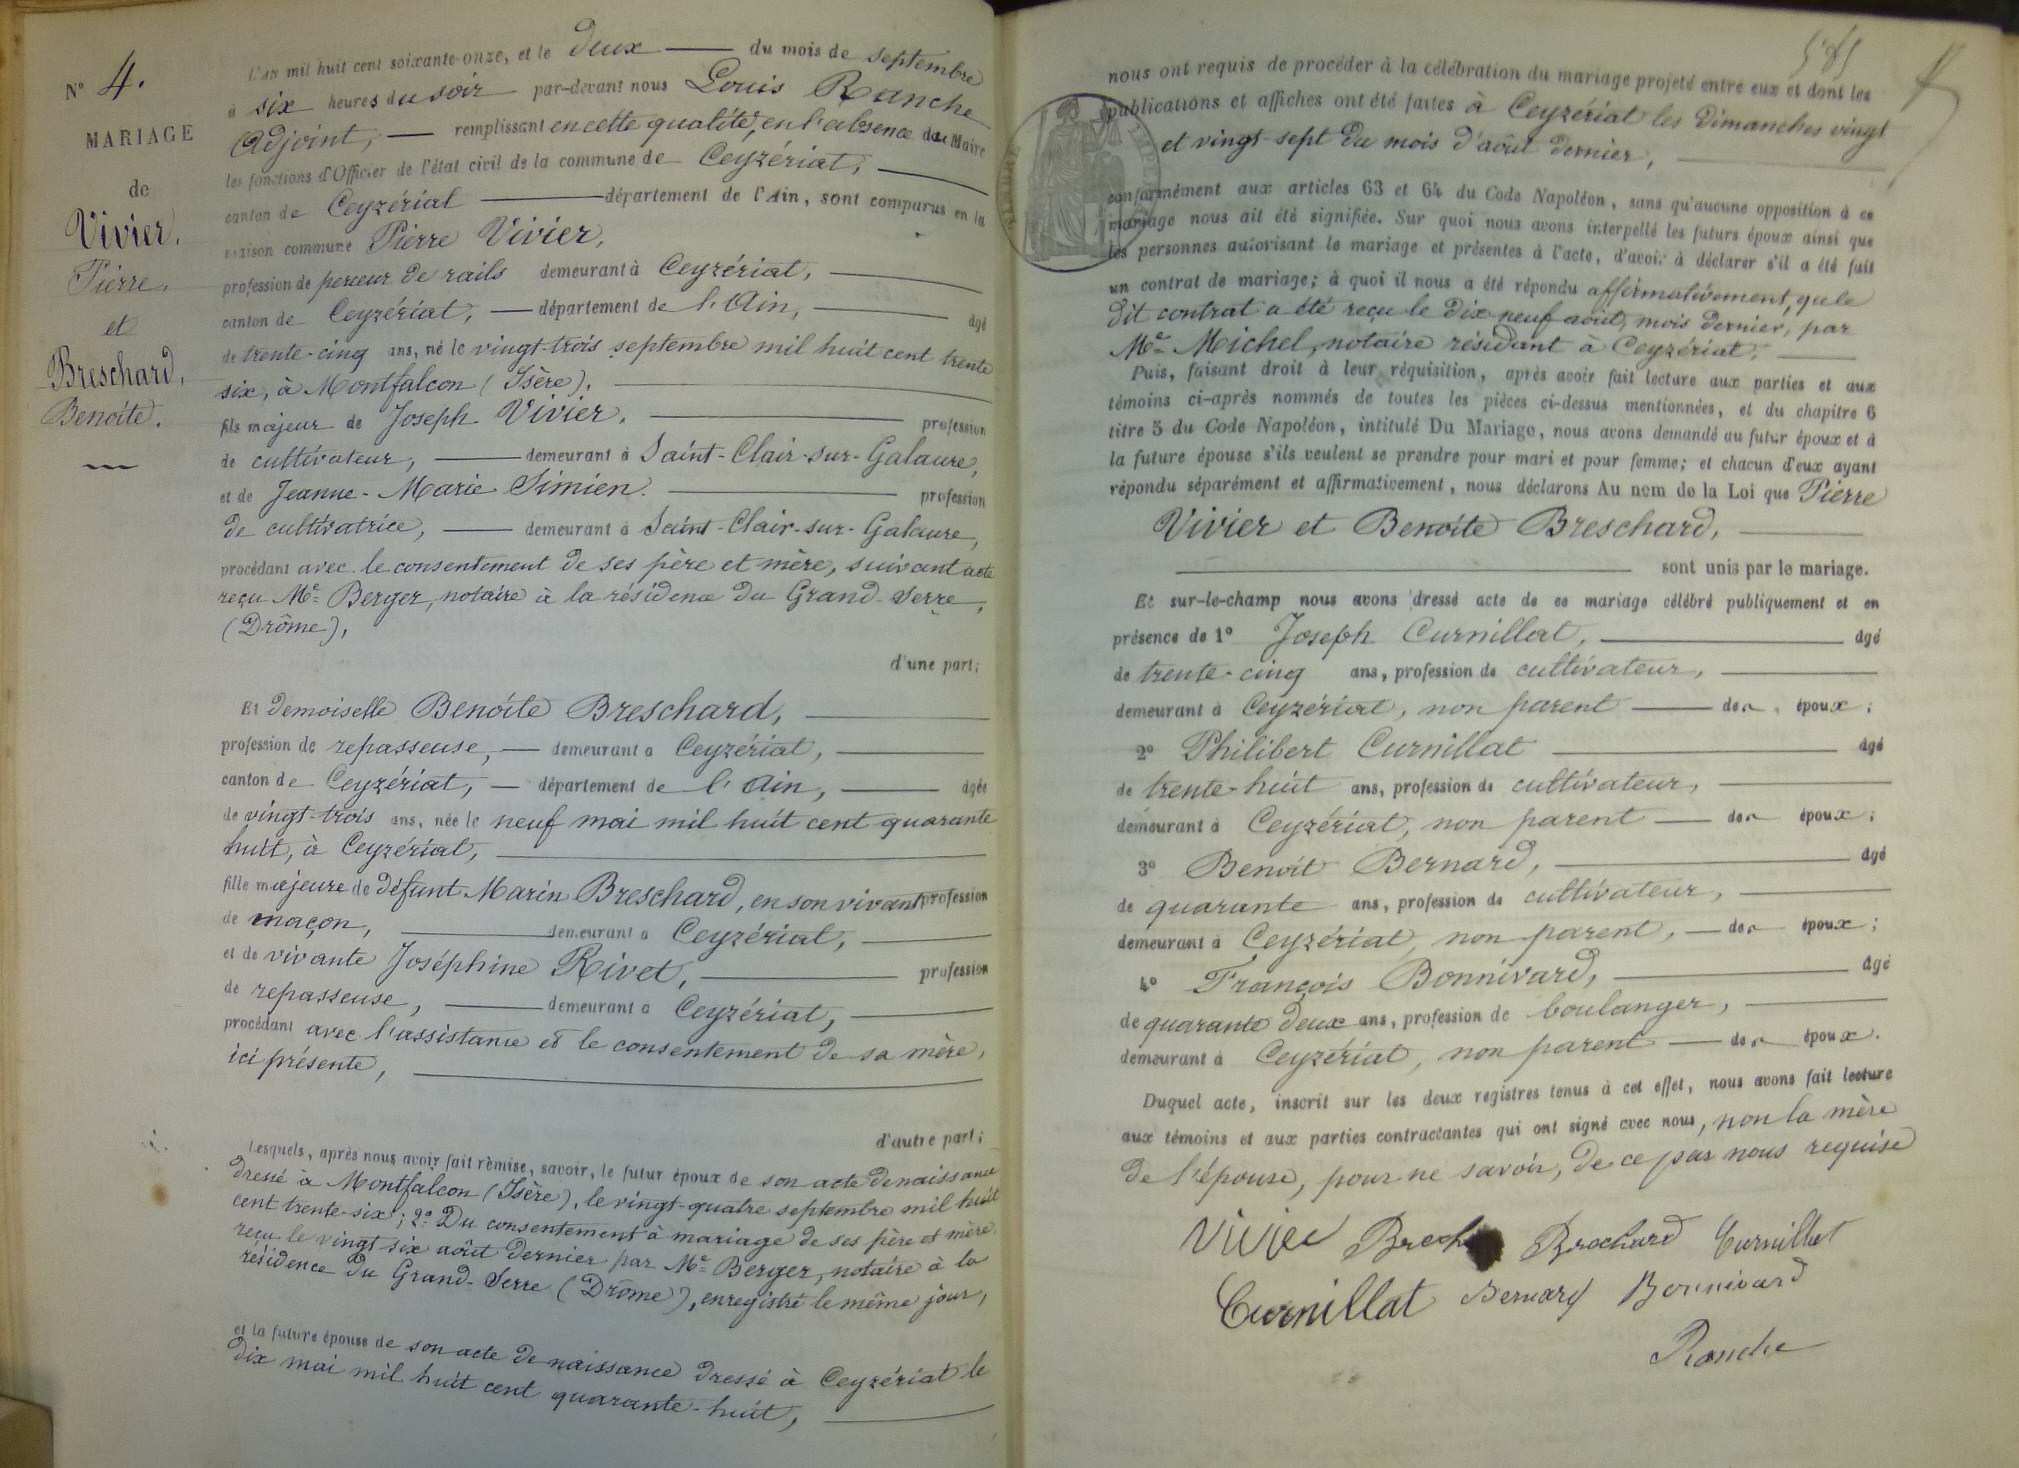 N° 4.
MARIAGE
de
Vivier,
Pierre,
et
Breschard,
Benoite.
L'an mil huit cent soixante-onze, et le deux du mois de septembre
à six heures du soir par-devant nous Louis Ranche
Adjoint, remplissant en cette qualité, en l'absence du Maire
les fonctions d'Officier de l'état civil de la commune de Ceyzériat,
canton de Ceyzériat département de l'Ain, sont comparus en la
maison commune Pierre Vivier,
profession de perceur de rails demeurant à Ceyzériat,
canton de Ceyzériat, département de l'Ain, âgé
de trente-cinq ans, né le vingt-trois septembre mil huit cent trente
six, à Montfalcon (Isère),
fils majeur de Joseph Vivier, profession
de cultivateur, demeurant à Saint-Clair-sur-Galaure,
et de Jeanne-Marie Simien. profession
de cultivatrice, demeurant à Saint-Clair-sur-Galaure,
procédant avec le consentement de ses père et mère, suivant acte
reçu Me Berger, notaire à la résidence du Grand-Serre,
(Drôme),
d'une part;
Et demoiselle Benoite Breschard,
profession de repasseuse, demeurant à Ceyzériat,
canton de Ceyzériat, département de l'Ain, âgée
de vingt-trois ans, née le neuf mai mil huit cent quarante
huit, à Ceyzériat,
fille majeure de défunt Marin Breschard, en son vivant profession
de maçon, demeurant à Ceyzériat,
et de vivante Joséphine Rivet, profession
de repasseuse, demeurant à Ceyzériat,
procédant avec l'assistance et le consentement de sa mère,
ici présente,
d'autre part;
Lesquels, après nous avoir fait remise, savoir, le futur époux de son acte de naissance
dressé à Montfalcon (Isère), le vingt-quatre septembre mil huit
cent trente-six; 2° Du consentement à mariage de ses père et mère
reçu le vingt six août dernier par Me Berger, notaire à la
résidence du Grand-Serre (Drôme), enregistré le même jour,
et la future épouse de son acte de naissance dressé à Ceyzériat le
dix mai mil huit cent quarante-huit,
nous ont requis de procéder à la célébration du mariage projeté entre eux et dont les
publications et affiches ont été faites à Ceyzériat les dimanches vingt
et vingt-sept du mois d'août dernier,
conformément aux articles 63 et 64 du Code Napoléon, sans qu'aucune opposition à ce
mariage nous ait été signifiée. Sur quoi nous avons interpellé les futurs époux ainsi que
les personnes autorisant le mariage et présentes à l'acte, d'avoir à déclarer s'il a été fait
un contrat de mariage; à quoi il nous a été répondu affirmativement, que le
dit contrat a été reçu le dix neuf août, mois dernier, par
Me Michel, notaire résidant à Ceyzériat.
Puis, faisant droit à leur réquisition, après avoir fait lecture aux parties et aux
témoins ci-après nommés de toutes les pièces ci-dessus mentionnées, et du chapitre 6
titre 5 du Code Napoléon, intitulé Du Mariage, nous avons demandé au futur époux et à
la future épouse s'ils veulent se prendre pour mari et pour femme; et chacun d'eux ayant
répondu séparément et affirmativement, nous déclarons Au nom de la Loi que Pierre
Vivier et Benoite Breschard,
sont unis par le mariage.
Et sur-le-champ nous avons dressé acte de ce mariage célébré publiquement et en
présence de 1° Joseph Curnillat, âgé
de trente-cinq ans, profession de cultivateur,
demeurant à Ceyzériat, non parent des époux;
2° Philibert Curnillat âgé
de trente-huit ans, profession de cultivateur,
demeurant à Ceyzériat, non parent des époux;
3° Benoit Bernard, âgé
de quarante ans, profession de cultivateur,
demeurant à Ceyzériat, non parent, des époux;
4° François Bonnivard, âgé
de quarante deux ans, profession de boulanger,
demeurant à Ceyzériat, non parent des époux.
Duquel acte, inscrit sur les deux registres tenus à cet effet, nous avons fait lecture
aux témoins et aux parties contractantes qui ont signé avec nous, non la mère
de l'épouse, pour ne savoir, de ce par nous requise
Vivier Brochard Curnillat
Curnillat Bernard Bonnivard
Ranche